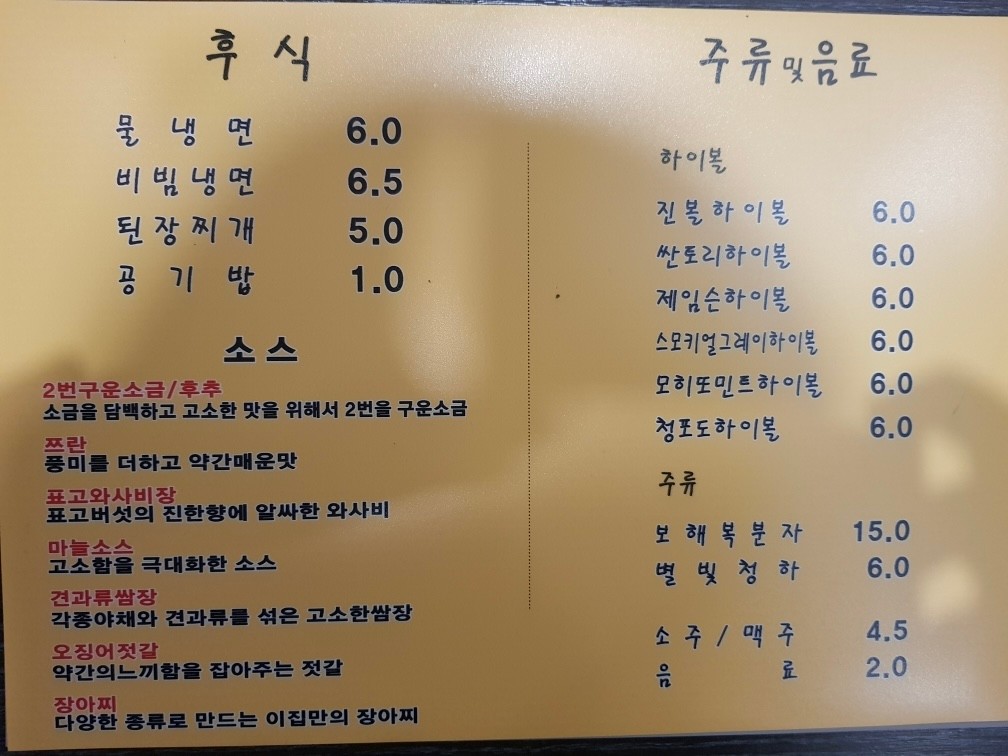 후 식
물 냉 면 6.0
비빔냉면 6.5
된장찌개 5.0
공 기 밥 1.0
소스
2번구운소금/후추
소금을 담백하고 고소한 맛을 위해서 2번을 구운소금
쯔란
풍미를 더하고 약간매운맛
표고와사비장
표고버섯의 진한향에 알싸한 와사비
마늘소스
고소함을 극대화한 소스
견과류쌈장
각종야채와 견과류를 섞은 고소한쌈장
오징어젓갈
약간의느끼함을 잡아주는 젓갈
장아찌
다양한 종류로 만드는 이집만의 장아찌
주류및음료
하이볼
진볼하이볼 6.0
싼토리하이볼 6.0
제임슨하이볼 6.0
스모키얼그레이하이볼 6.0
모히또민트하이볼 6.0
청포도하이볼 6.0
주류
보해복분자 15.0
별빛청하 6.0
소주/맥주 4.5
음 료 2.0